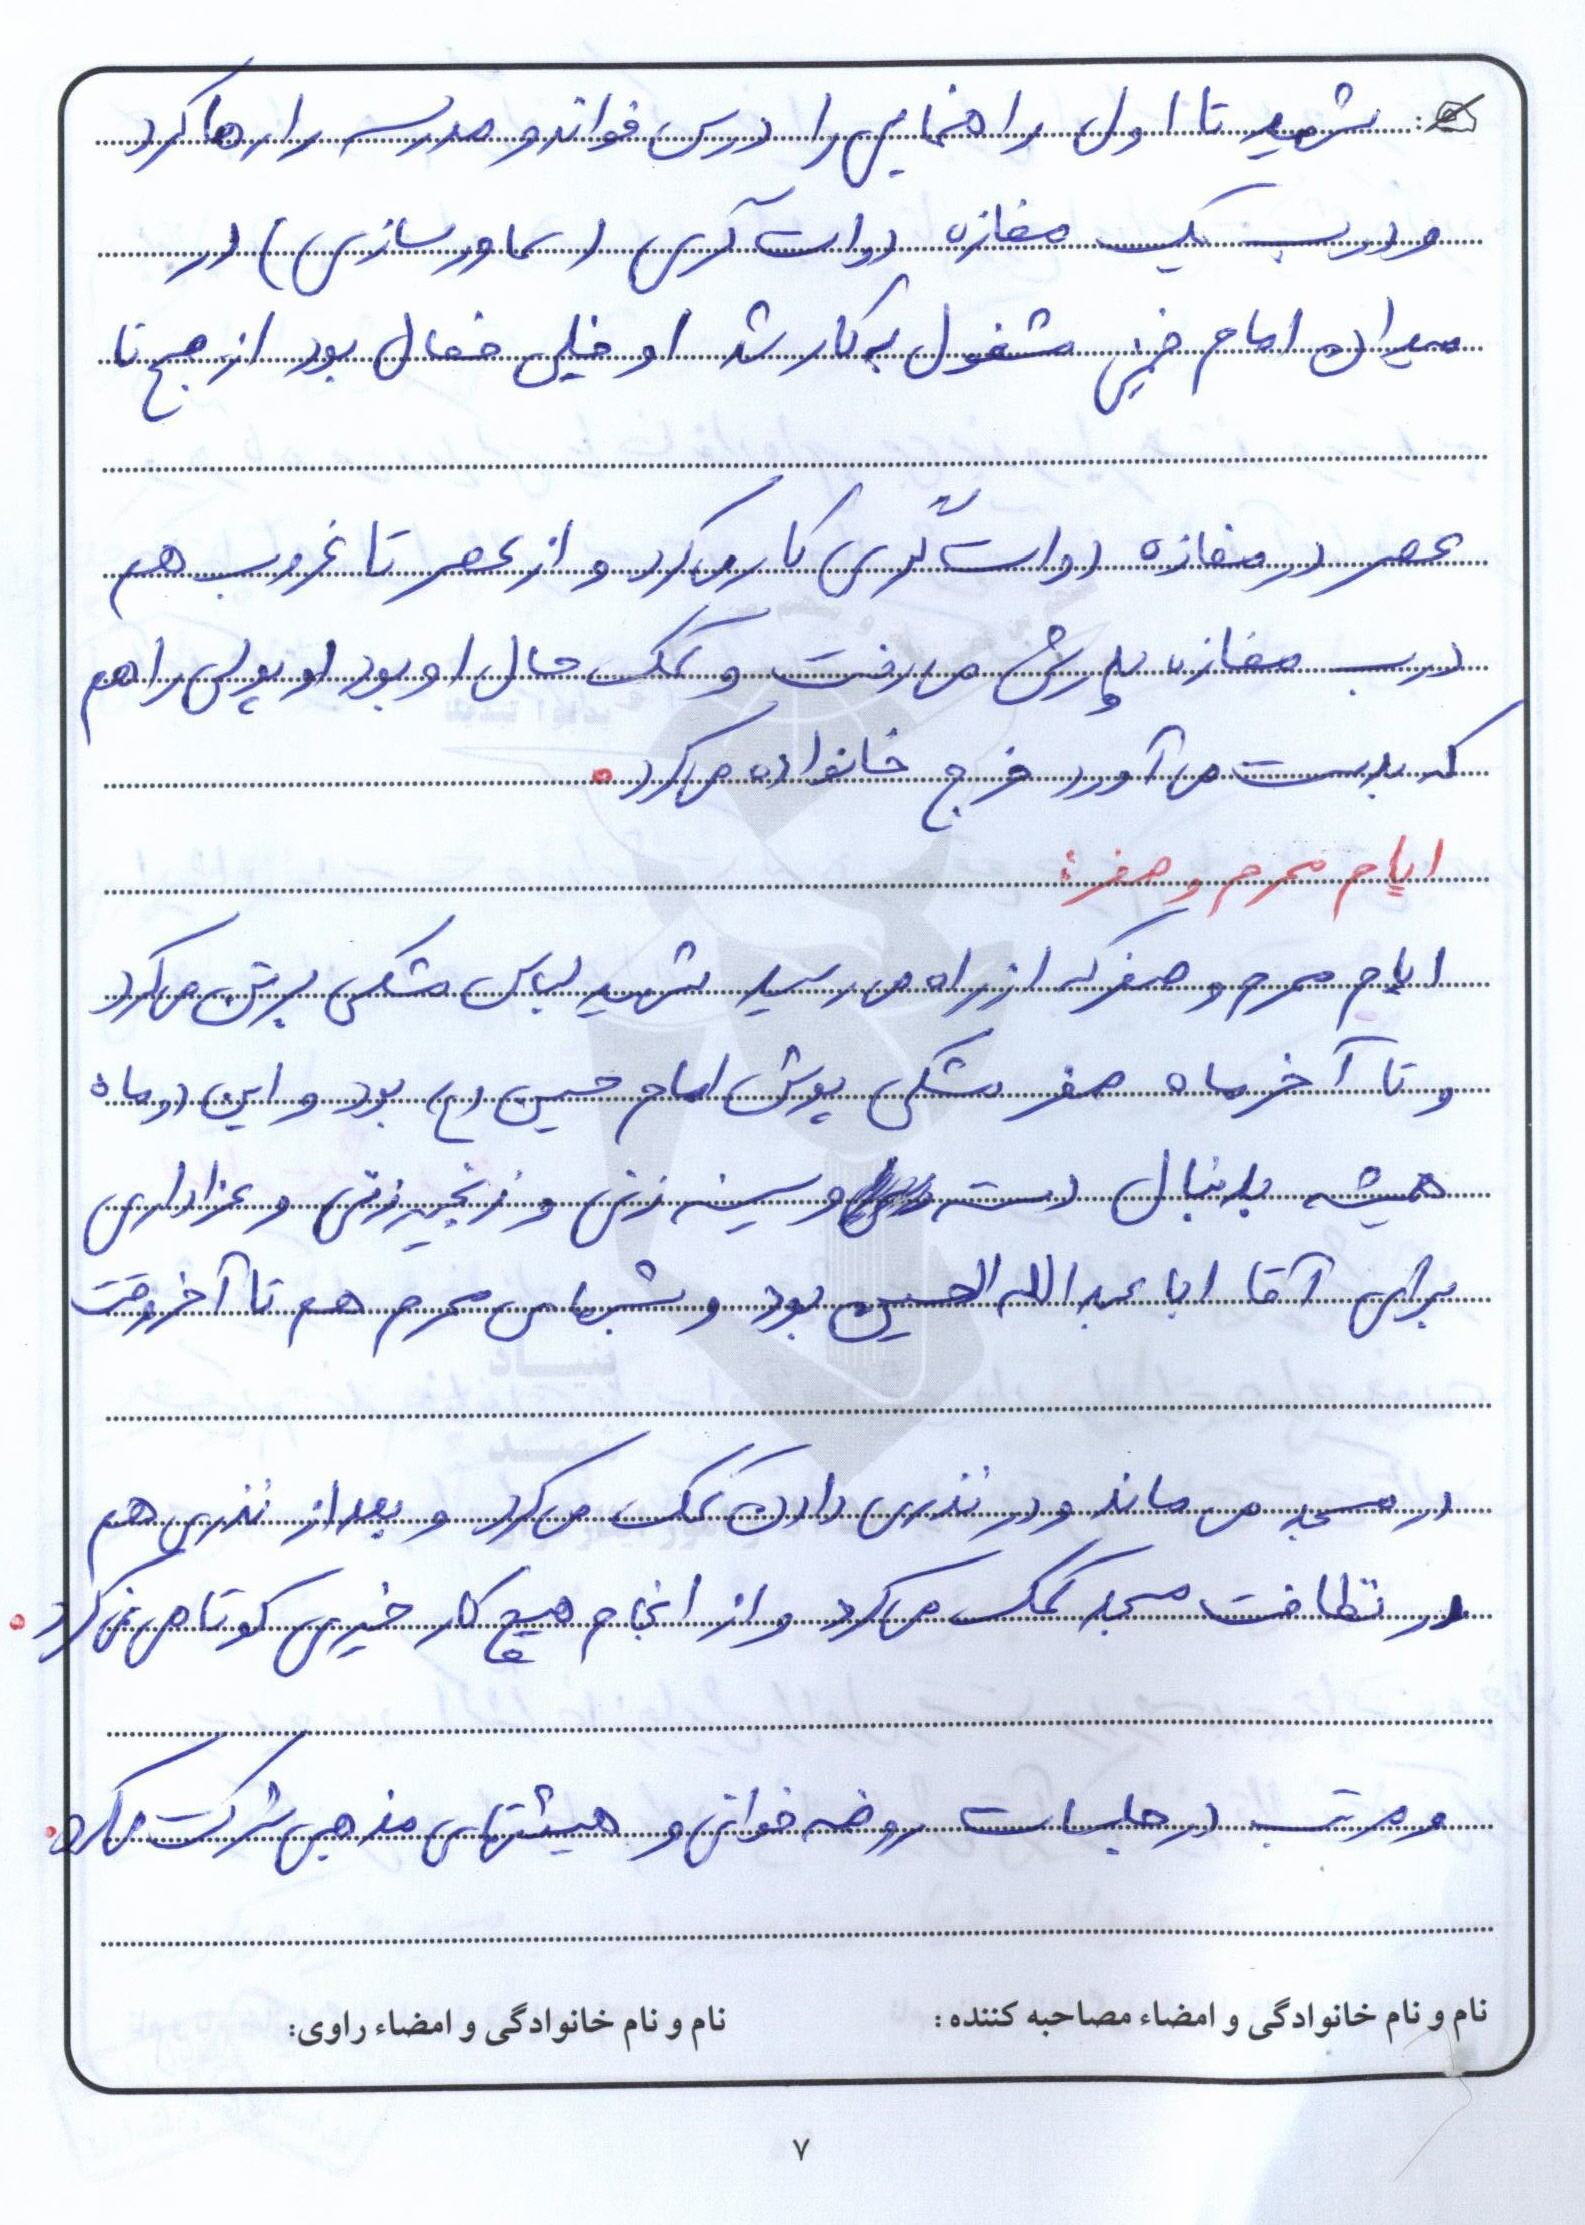 شهید تا اول راهنمایی را درس خواند و مدرسه را رها کرد
و درب یک مغازه دوات گری (سماور سازی) در
میدان امام خمینی مشغول به کار شد او خیلی فعال بود از صبح تا
عصر در مغازه دوات گری کار می کرد و از عصر تا غروب هم
درب مغازه پدرش می رفت و کمک حال او بود او پولی را هم
که بدست می آورد خرج خانواده می کرد.
ایام محرم و صفر:
ایام محرم و صفر که از راه می رسید شهید لباس مشکی برتن می کرد
و تا آخر ماه صفر مشکی پوش امام حسین (ع) بود و این دو ماه
همیشه بدنبال دسته و سینه زنی و زنجیر زنی و عزاداری
برای آقا ابا عبدالله الحسین بود و شبهای محرم هم تا آخر وقت
در مسجد می ماند و در نذری دادن کمک می کرد و بعد از نذری هم
در نظافت مسجد کمک می کرد و از انجام هیچ کار خیری کوتاهی نمی کرد.
و مرتب در جلسات روضه خوانی و هیئتهای مذهبی شرکت می کرد.
نام و نام خانوادگی و امضاء مصاحبه کننده: نام و نام خانوادگی و امضاء راوی:
۷